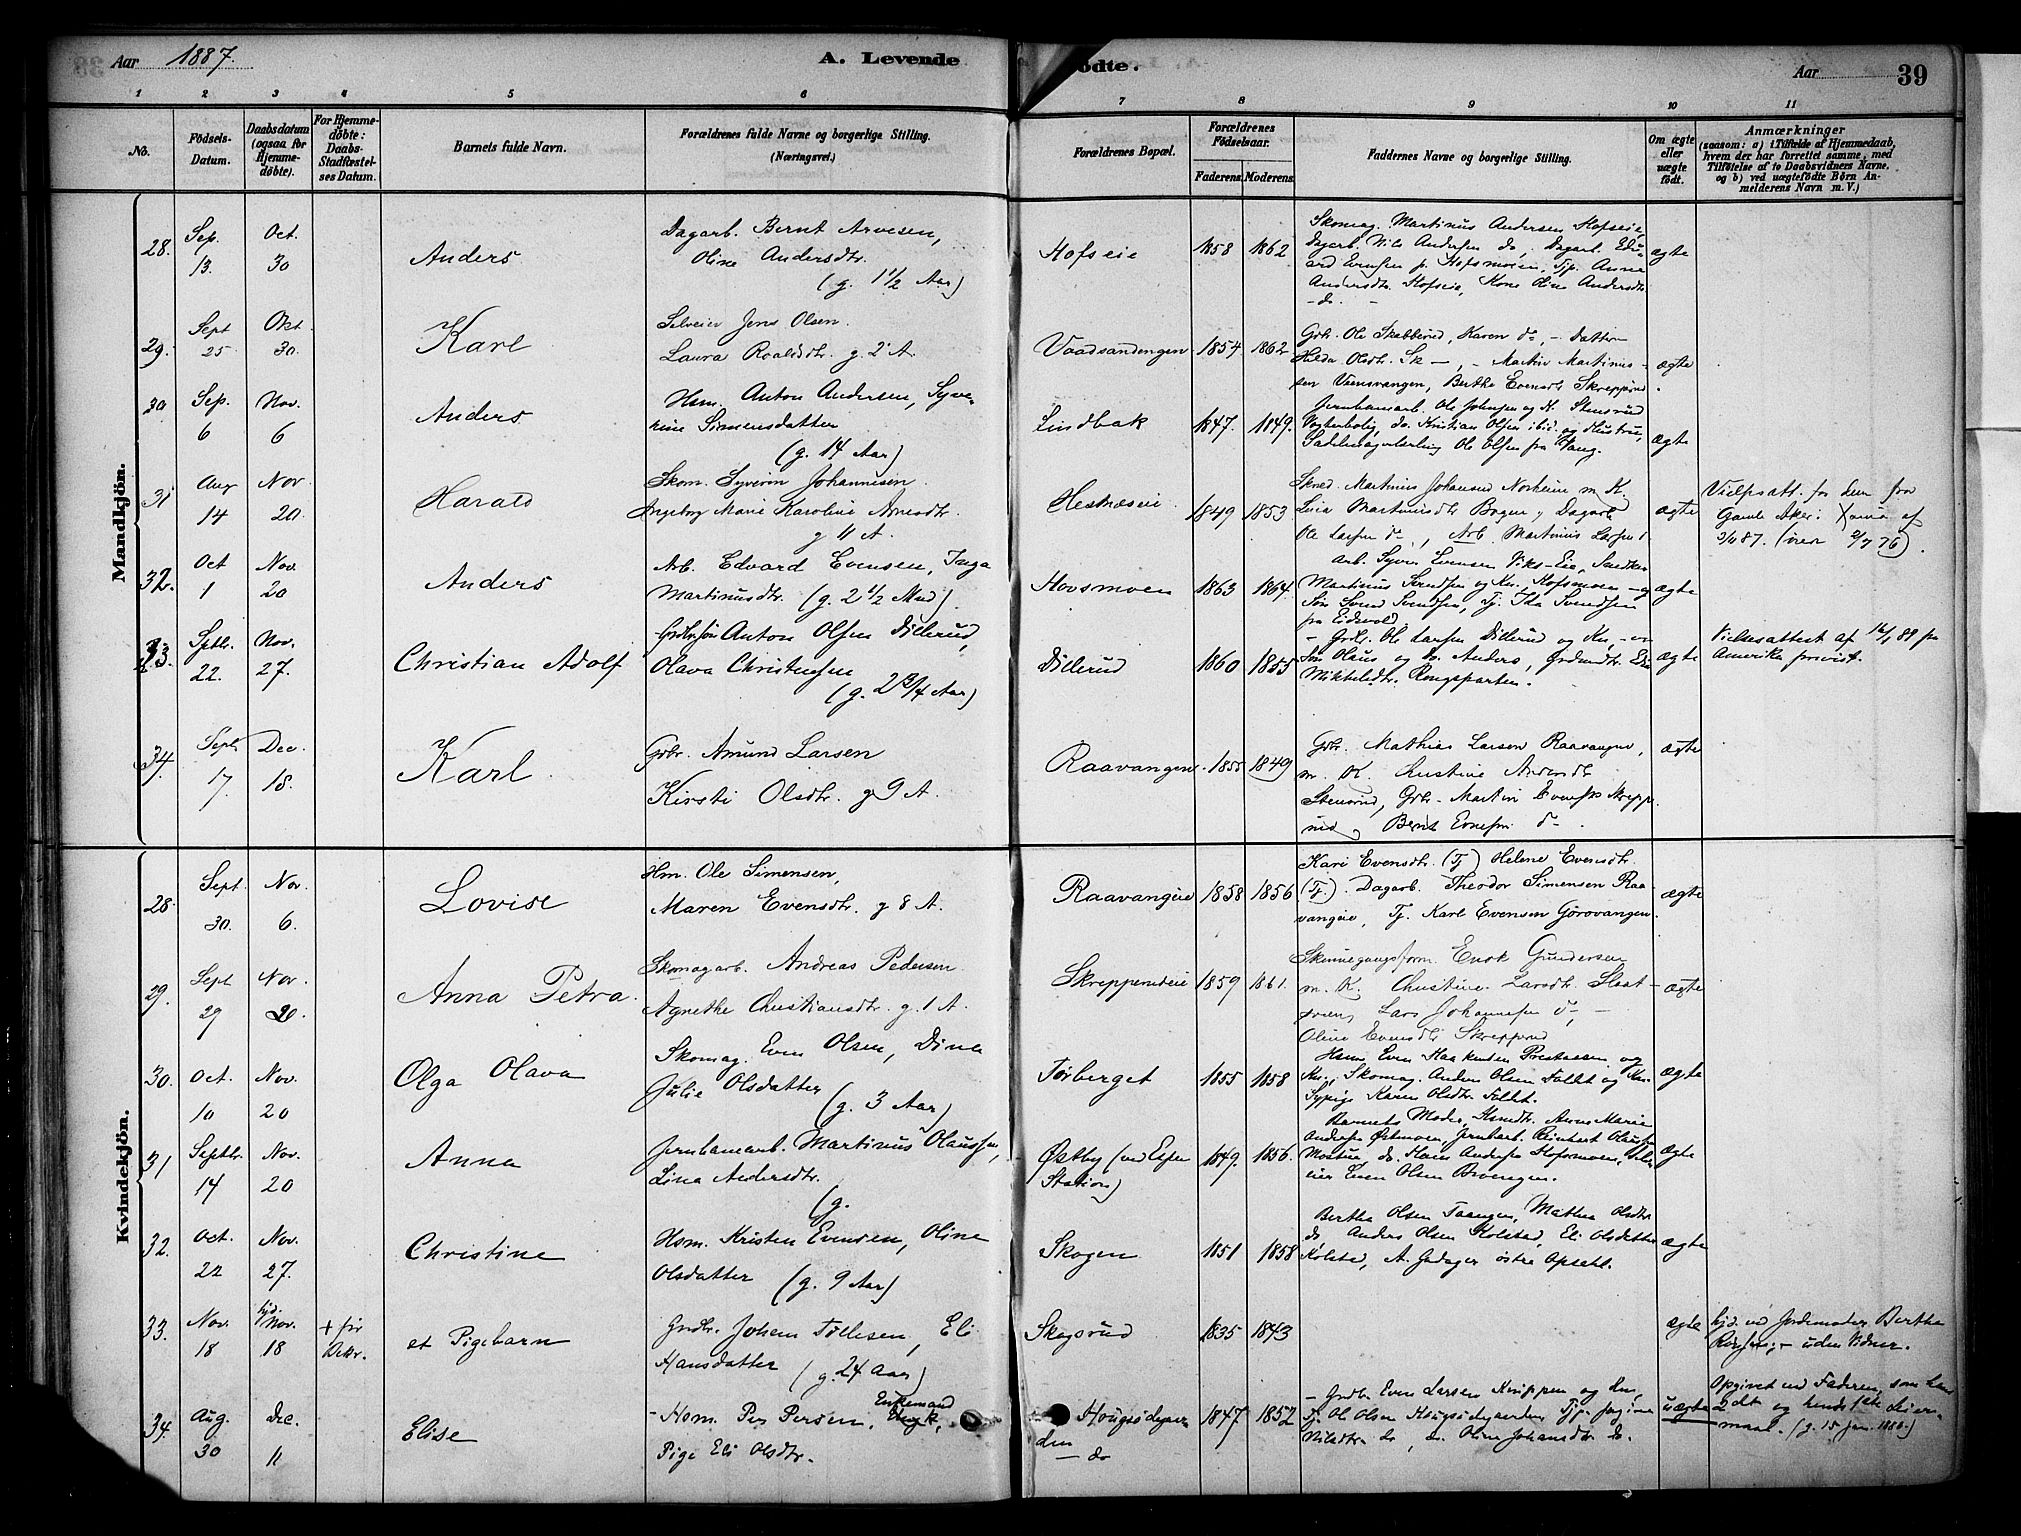 Aar 1887.
A. Levende
ödte.
Aar
39
1 2 3 4 5 6 7 8 9 10 11
No.
Födsels-
Datum.
Daabsdatum
(ogsaa for
Hjemme-
döbte).
For Hjemme-
döbte:
Daabs-
Stadfæstel-
ses Datum.
Barnets fulde Navn.
Forældrenes fulde Navne og borgerlige Stilling.
(Næringsvei.)
Forældrenes Bopæl.
Forældrenes
Födselsaar.
Faderens. Moderens.
Faddernes Navne og borgerlige Stilling.
Om ægte
eller
uægte
födt.
Anmærkninger
(saasom: a) i Tilfælde af Hjemmedaab,
hvem der har forrettet samme, med
Tilföielse af to Daabsvidners Navne,
og b) ved uægtefödte Börn An-
melderens Navn m. V.)
Mandkjön.
28. Sep. 13. Oct. 30
Anders
Dagarb. Bernt Arvesen,
Oline Andersdtr.
(g. 1 1/2 Aar)
Hofseie 1858 1862
Skomag. Martinus Andersen Hofseie,
Dagarb. Nils Andersen do, Dagarb. Edv-
ard Evensen p. Hofsmoien, Tjp. Anne
Andersdtr. Hofseie, Kone Oline Andersdtr.
- do. -
ægte
29. Sept 25 Okt. 30.
Karl
Selveier Jens Olsen.
Laura Roaldsdtr. g. 2 A.
Vaadsandengen 1854 1862
Gbr. Ole Skabberud, Karen do, - Datter
Hilda Olsdtr. Sk -, - Martin Martinus-
sen Viensvangen, Berthe Evensdtr Skreppsrud.
ægte
30 Sep. 6 Nov. 6
Anders
Hsm. Anton Andersen, Syve-
rine Simensdatter
(g. 14 Aar)
Lindbak 1847. 1849.
Jernbanearb. Ole Johnsen og K. Stensrud
Vogterbolig, do. Kristian Olsen ibid. og Hustru,
Sadelmagerlærling Ole Olsen fra Vang.
ægte
31 Aug 14 Nov 20.
Harald
Skom. Syverin Johannesen.
Ingeborg Marie Karoline Arnesdtr.
g 11 A.
Hestnæseie 1849 1853
Skræd. Martinius Johansen Norheim m. K.
Lina Martinusdtr Bogen, Dagarb
Ole Larsen do, Arb. Martinius Larsen
ægte
for fra
Gamle Aker af
87.
32. Oct 1 Nov. 20
Anders
Arb. Edvard Evensen, Inga
Martinusdtr. (g. 2 1/2 Mnd).
Hovsmoen 1863 1864.
Arb. Syver Evensen Viks-Eie,
Martinus Svendsen og Kn. Hofsmoen - og
Søn Svend Svendsen, Tj. Svendsen
fra Eidsvold.
ægte
33. Septbr. 22. Nov. 27.
Christian Adolf
Gbrsøn Anton Olsen Dillerud,
Olava Christensen
(g. 2 3/4 Aar)
Dillerud 1860 1855
- Grbr. Ole Larsen Dillerud og Kn, -
Søn Olaus og do. Anders,
Mikkelsdtr. Rongsparten.
ægte
Vielsesattest af 16/1 89 fra
Amerika forevist.
34. Sept. 17. Dec. 18.
Karl
Gbr. Amund Larsen
Kirsti Olsdtr. g 9 A.
Raavangen 1855 1849
Gbr. Mathias Larsen Raavangen,
m. K. Christine Andersdtr
Stensrud, Gbr. Martin Evensen Skrepp-
rud, Bernt Evensen do.
ægte
Kvindekjön.
28. Sept. 30. Nov. 6.
Lovise
Hsm. Ole Simensen,
Maren Evensdtr. g 8 A.
Raavangeie 1858 1856
Kari Evensdtr. (Tj) Helene Evensdtr.
(Tj). Dagarb. Theodor Simensen Raa-
vangeie, Tj. Karl Evensen Görovangen.
ægte
29. Sept 29 Nov. 20.
Anna Petra.
Skomagarb. Andreas Pedersen
Agnethe Christiansdtr. g. 1 A.
Skreppsrudeie 1859 1861.
Enok Gundersen
m. K. Christine Larsdtr.
Lars Johannesen do, -
Oline Evensdtr Skreppsrud
ægte
30. Oct. 10 Nov. 20
Olga Olava
Skomag. Even Olsen, Dina
Julie Olsdatter
(g. 3 Aar)
Torberget 1855 1858
Hsm. Even Haakensen Prestsæen og
Kn., Skomag. Anders Olsen Faldet og Kn.
Sypige Karen Olsdtr. Faldet.
ægte
31 Septbr. 14 Nov. 20
Anna
Jernbanearb. Martinus Olaussen,
Lina Andersdtr.
(g.
Østby (ved Espa
Station) 1849. 1856.
Barnets Moder, Anne Marie
Andersen Østmoen, Jernbarb. Reinhart Olausen
do. Hans Andersen Hofsmoen, Selv-
eier Even Olsen
ægte
32. Oct. 22 Nov. 27.
Christine
Hsm. Kristen Evensen, Oline
Olsdatter (g. 9 Aar)
Skogen 1851 1858
Berthe Olsen Taangen, Mathea Olsdtr.
do, Anders Olsen Kolstad, Eli Olsdatter
Kolstad, A. östre Opsetl.
ægte
33. Nov. 18 hjd. Nov. 18 + før
Bekr.
et Pigebarn
Grdbr. Johan Tollesen, Eli
Hansdatter (g. 24 Aar)
Skogsrud 1835 1843
ægte
hjd. ved Jordemoder Berthe
- uden Vidner.
34. Aug. 30 Dec. 11
Elise
- Hsm. Per Persen, Enkemand
Pige Eli Olsdtr.
Hougsödegaar-
den
- do 1847 1852
- Grdb. Even Larsen Knippen og Kn,
Tj. Ole Olsen Hougsödegaarden, Tjp.
Nilsdtr. do, do. Oline Johansdtr. do.
uægte
Opgivet ved Faderen, som hans
2det og hendes 1ste Leier-
maal. (g. 15 Jan. 1888.)